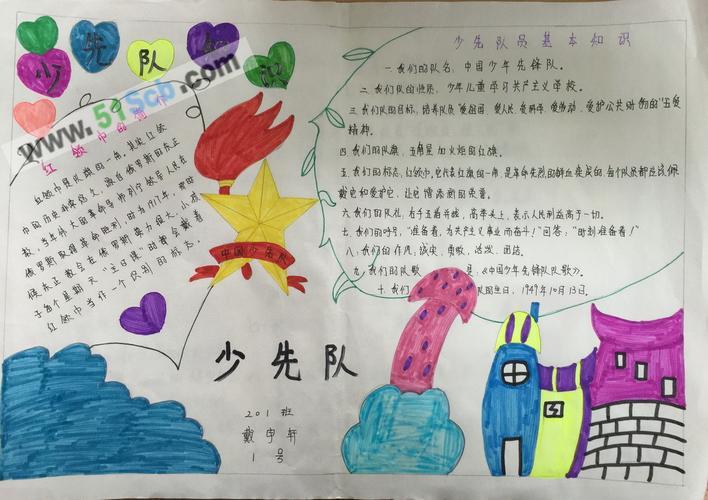 少先队知识
www.515cb.com
红领巾的
红领巾是队旗的一角。其实红领
巾的历史
教。当年
俄罗斯取得革命胜利,时为1917年,那时
候东正教会在俄罗斯势力很大,小孩
子每个星期天“主日课”时都会戴着
红领巾当作一个识别的标志。
中国少先队
少先队
201班
戴宇轩
1号
少先队员基本知识
一、我们的队名:中国少年先锋队。
二、我们队的性质:少年儿童学习共产主义学校。
三、我们队的目标:培养队员“爱祖国、爱人民、爱科学、爱劳动、爱护公共财物的“五爱
精神。
四、我们的队旗:五角星加火炬的红旗。
五、我们的标志:红领巾。它代表红旗的一角,是革命先烈的鲜血染成的,每个队员都应该佩
戴它和爱护它,让它增添新的荣誉。
六、我们的队礼:右手五指并拢,高举头上,表示人民利益高于一切。
七、我们的呼号:“准备着,为共产主义事业而奋斗!”回答:“时刻准备着!”
八、我们的作风:诚实、勇敢、活泼、团结。
九、我们的队歌 是:《中国少年先锋队队歌》。
十、我们 队的生日:1949年10月13日。